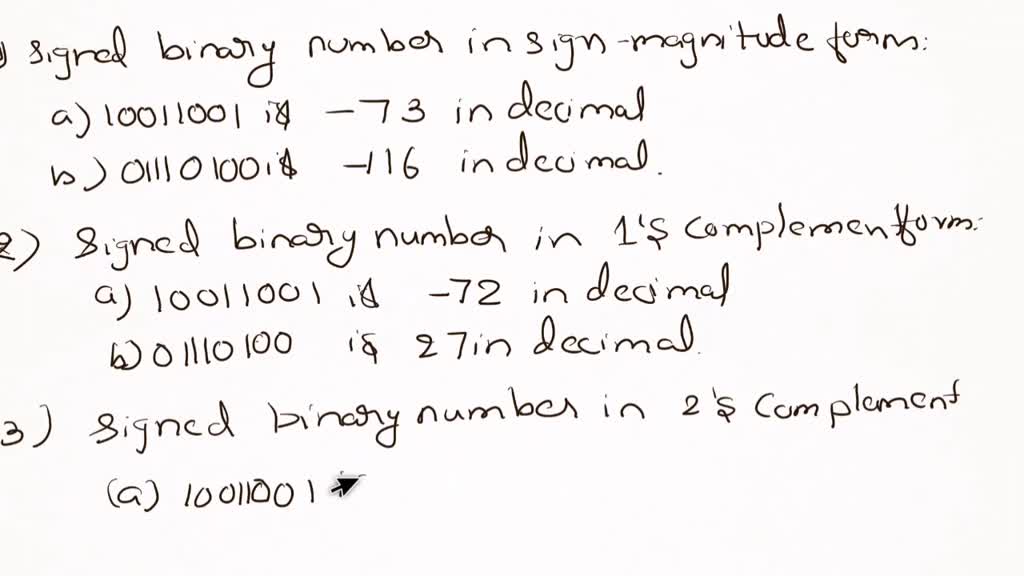 ) signed binary number in sign-magnitude form:
a) 10011001 is -73 in decimal
b) 01110100 is -116 in decimal.
2) Signed binary number in 1's complement form:
a) 10011001 is -72 in decimal
b) 01110100 is 27 in decimal.
3) signed binary number in 2's complement
(a) 10011001